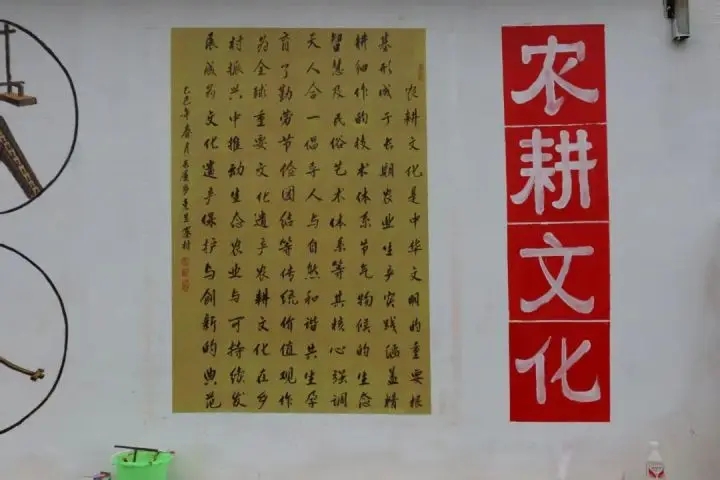 农耕文化
农耕文化是中华文明的重要根
基形成于长期农业生产实践涵盖精
耕细作的技术体系节气物候的生态
智慧及民俗艺术体系等其核心强调
天人合一倡导人与自然和谐共生孕
育了勤劳节俭团结等传统价值观作
为全球重要文化遗产农耕文化在乡
村振兴中推动生态农业与可持续发
展成为文化遗产保护与创新的典范
乙巳年春月